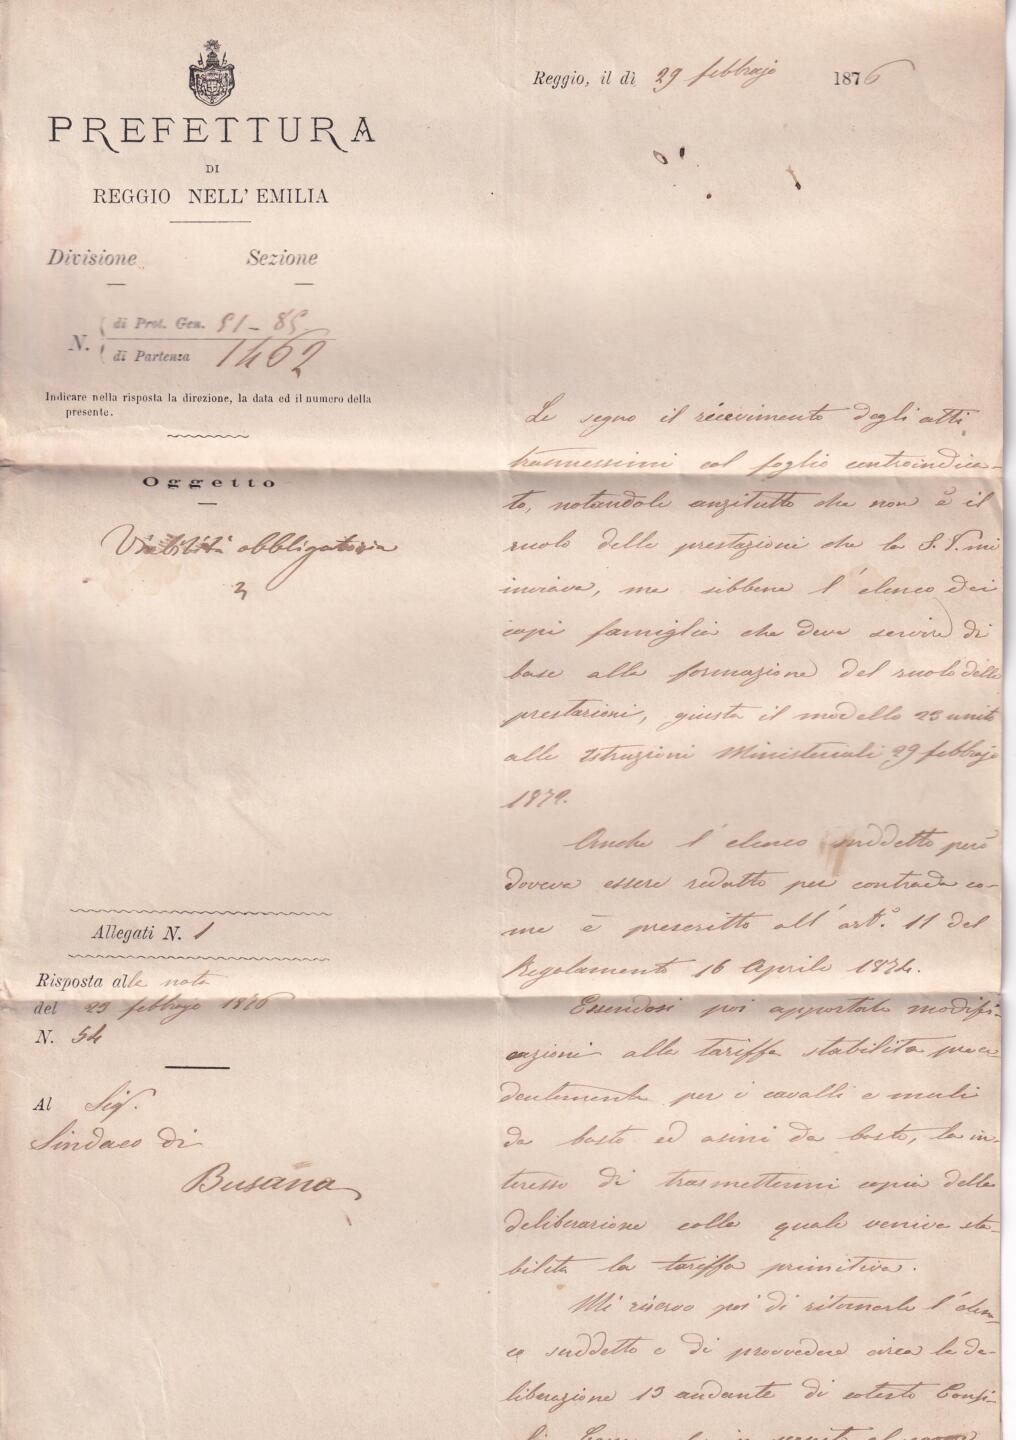 PREFETTURA
DI
REGGIO NELL' EMILIA
Divisione Sezione
N. di Prot. Gen. 51-85
di Partenza 1462
Indicare nella risposta la direzione, la data ed il numero della
presente.
Oggetto
Viabilità obbligatoria
Allegati N. 1
Risposta alla nota
del 25 febbrajo 1876
N. 54
Al Sig.
Sindaco di
Busana
Reggio, il dì 29 febbrajo 1876
Le segno il ricevimento degli atti
trasmessimi col foglio controindica-
to, notandole anzitutto che non è il
ruolo delle prestazioni che la S.V. mi
inviava, ma sibbene l'elenco dei
capi famiglia che deve servire di
base alla formazione del ruolo delle
prestazioni, giusta il modello 25 unito
alle Istruzioni Ministeriali 29 febbrajo
Anche l'elenco suddetto però
doveva essere redatto per contrada co-
me è prescritto all' art.° 11 del
Regolamento 16 Aprile 1874.
Essendosi poi apportate modifi-
cazioni alla tariffa stabilita prece
dentemente per i cavalli e muli
da basto ed asini da basto, la in-
teresso di trasmettermi copia della
deliberazione colla quale veniva sta-
bilita la tariffa primitiva.
Mi riservo poi di ritornarle l'elen-
co suddetto e di provvedere circa la de-
liberazione 13 andante di cotesto Consi-